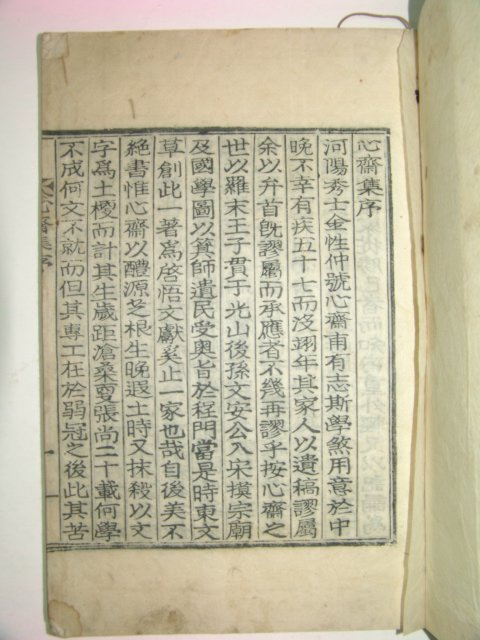 心齋集序
河陽秀士金性仲號心齋甫有志斯學煞用意於中
晚不幸有疾五十七而沒翊年其家人以遺稿謬屬
余以弁首旣謬屬而承應者不幾再謬乎按心齋之
世以羅末王子貫于光山後孫文安公入宋摸宗廟
及國學圖以箕師遺民受奧旨於程門當是時東文
草創此一著爲啓悟文獻奚止一家也哉自後美不
絶書惟心齋以醴源芝根生晚退土時又抹殺以文
字爲土櫌而計其生歲距滄桑戛張尚二十載何學
不成何文不就而但其專工在於弱冠之後此其苦
心齋集序